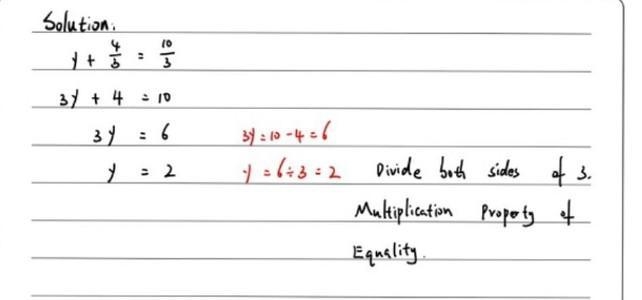 Solution.
y + 4/3 = 10/3
3y + 4 = 10
3y = 6 3y = 10 - 4 = 6
y = 2 y = 6 ÷ 3 = 2 Divide both sides of 3.
Multiplication Property of
Equality.